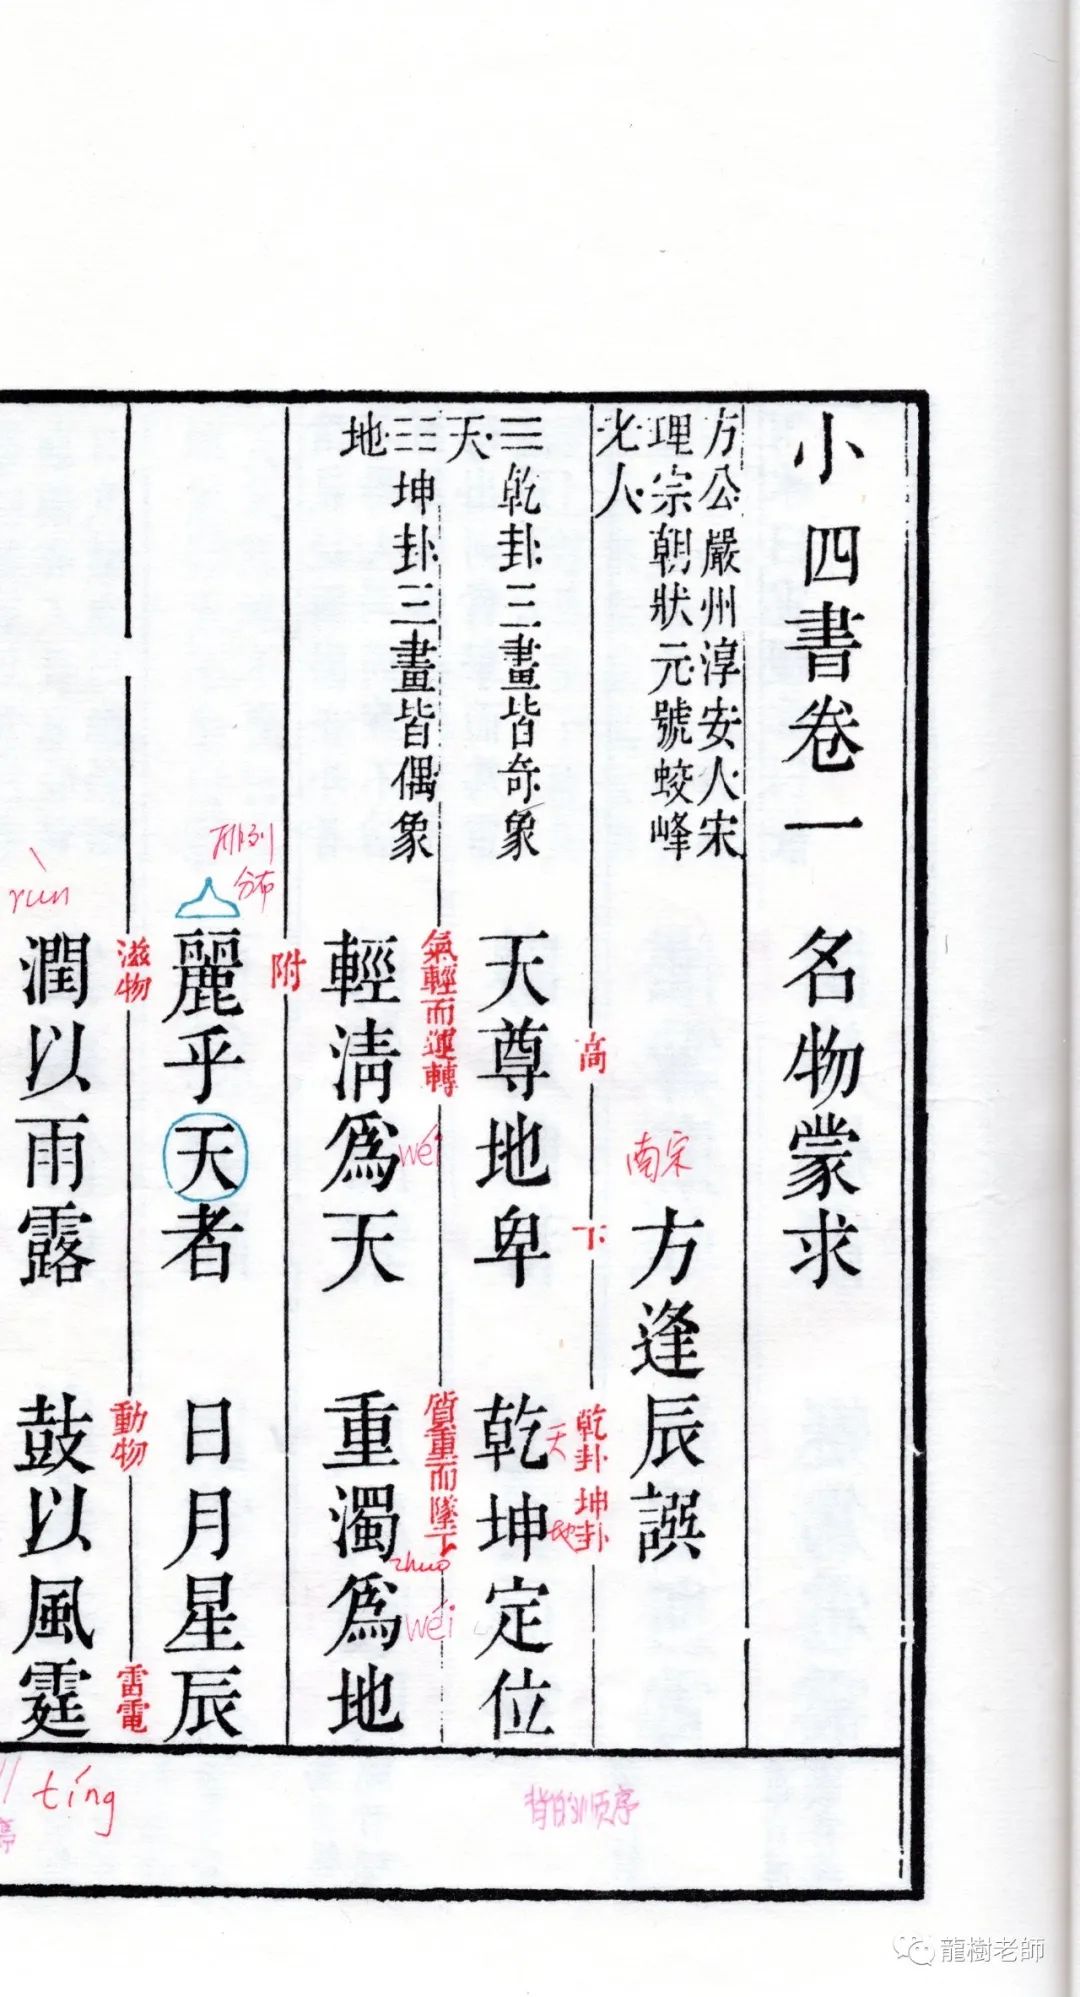 小四書卷一
名物蒙求
方公嚴州淳安人宋
理宗朝狀元號蛟峰
老人
南宋
方逢辰譔
高
下
乾卦
坤卦
天
地
☰乾卦三畫皆奇象
天
天尊地卑
乾坤定位
☷坤卦三畫皆偶象
地
氣輕而運轉
質重而墜下
輕清爲天
wéi
重濁爲地
zhuó
wéi
附
排列
分布
麗乎天者
日月星辰
滋物
動物
雷電
rùn
潤以雨露
鼓以風霆
tíng
背的顺序
龍樹老師